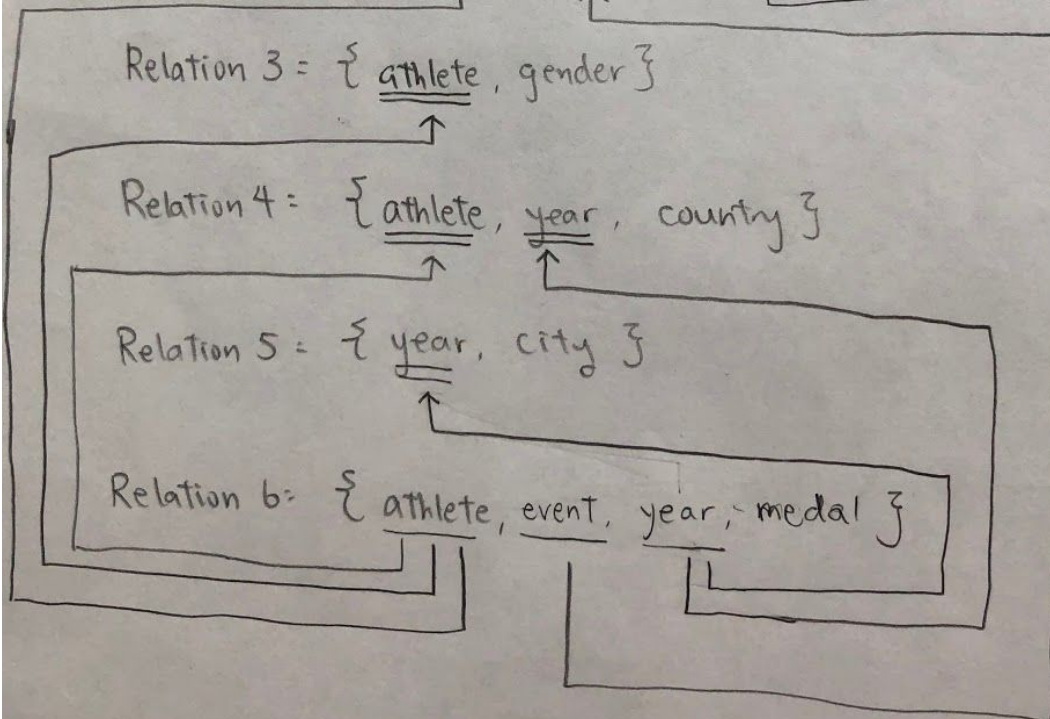 Relation 3 = { athlete, gender }
Relation 4 = { athlete, year, country }
Relation 5 = { year, city }
Relation 6 = { athlete, event, year, medal }